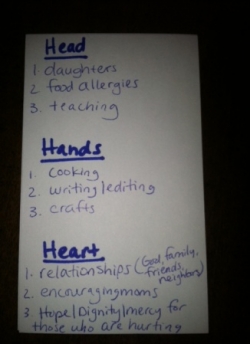 Head
1. daughters
2. food allergies
3. teaching
Hands
1. cooking
2. writing/editing
3. crafts
Heart
1. relationships (God, family, friends, neighbors)
2. encouraging moms
3. Hope/Dignity/mercy for
those who are hurting